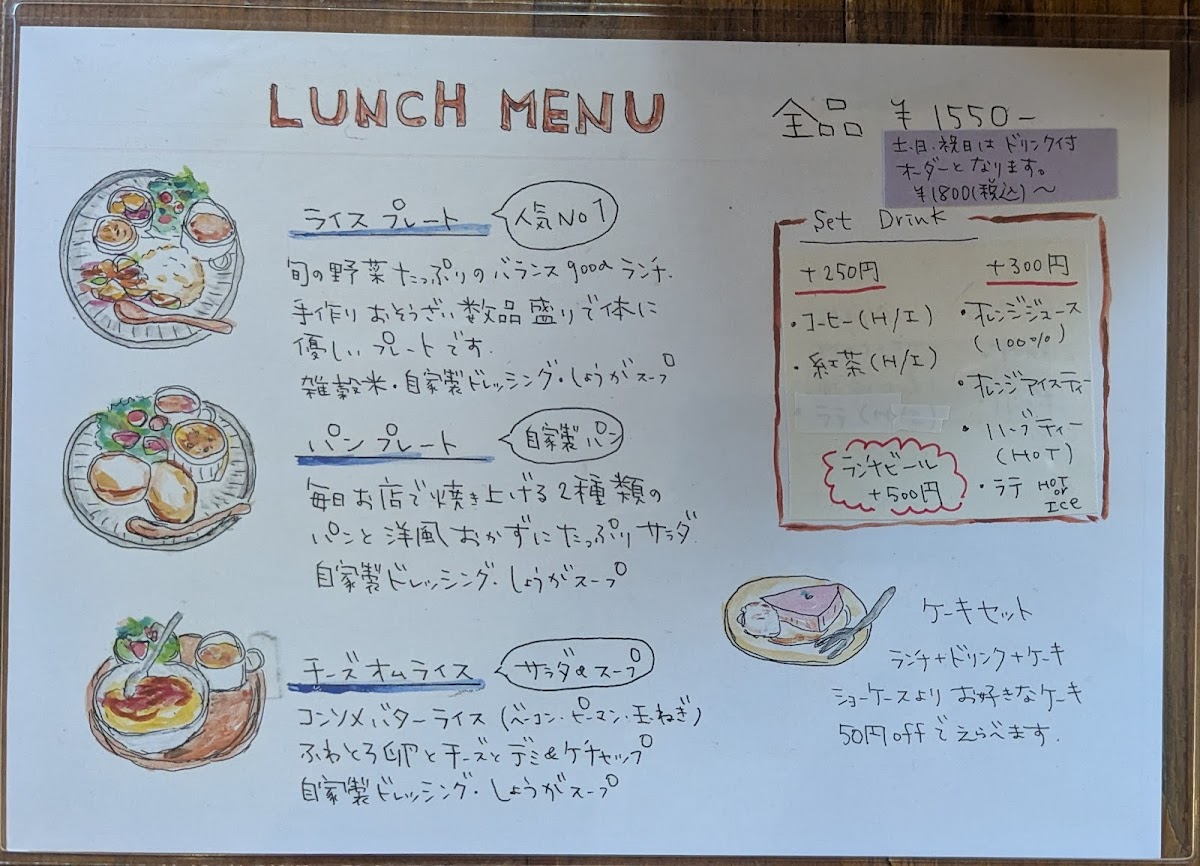 LUNCH MENU
全品 ¥1550-
土、日、祝日はドリンク付
オーダーとなります。
¥1800(税込)～
ライスプレート
人気No1
旬の野菜たっぷりのバランスgoodランチ.
手作りおそうざい数品盛りで体に
優しいプレートです.
雑穀米・自家製ドレッシング・しょうがスープ
パンプレート
自家製パン
毎日お店で焼き上げる2種類の
パンと洋風おかずにたっぷりサラダ.
自家製ドレッシング・しょうがスープ
チーズオムライス
サラダ&スープ
コンソメバターライス(ベーコン・ピーマン・玉ねぎ)
ふわとろ卵とチーズとデミ&ケチャップ
自家製ドレッシング・しょうがスープ
Set Drink
+250円
・コーヒー(H/I)
・紅茶(H/I)
ラテ(H/I)
ランチビール
+500円
+300円
・オレンジジュース
(100%)
・オレンジアイスティー
・ハーブティー
(HOT)
・ラテ HOT or Ice
ケーキセット
ランチ+ドリンク+ケーキ
ショーケースよりお好きなケーキ
50円offでえらべます.